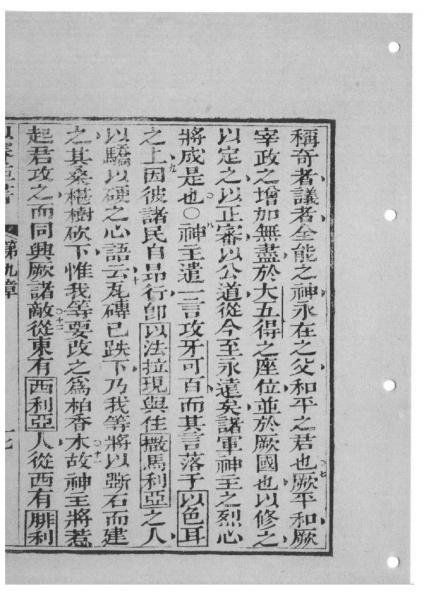 稱奇者議者全能之神永在之父和平之君也厥平和厥
宰政之增加無盡於大五得之座位並於厥國也以修之
以定之以正審以公道從今至永遠矣諸軍神主之烈心
將成是也○神主遣一言攻牙可百而其言落于以色耳
之上因彼諸民自昂行卽以法拉現與住撒馬利亞之人
以驕以硬之心語云瓦磚已跌下乃我等將以斲石而建
之其桑椹樹砍下惟我等要改之爲柏香木故神主將惹
起君攻之而同興厥諸敵從東有西利亞人從西有腓利
第九章